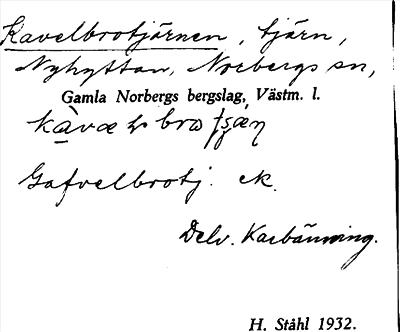 Kavelbrotjärnen, tjärn,
Nyhyttan, Norbergs sn,
Gamla Norbergs bergslag, Västm. l.
Gafvelbrotj. ek.
Delv. Karbänning.
H. Ståhl 1932.